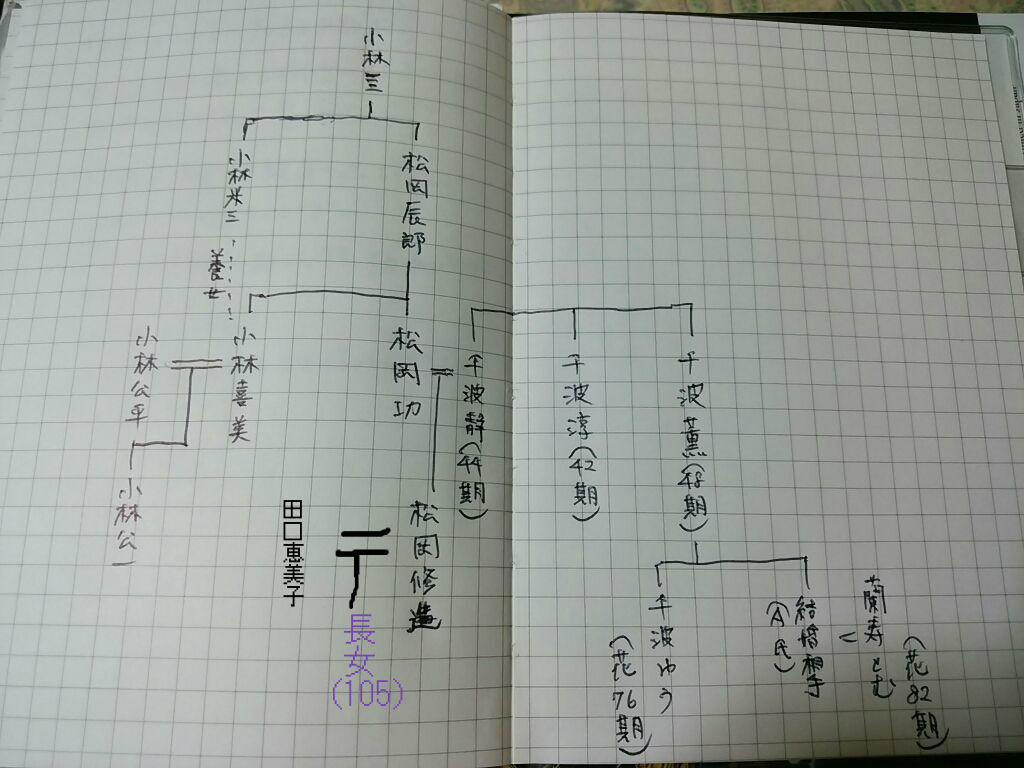 小林三
小林米三
松岡辰郎
養女
小林公平
小林喜美
松岡功
千波静(44期)
千波淳(42期)
千波薫(48期)
小林公一
田口恵美子
松岡修造
長女
(105)
千波ゆう
(花76期)
結婚相手
(A氏)
蘭寿とむ
(花82期)